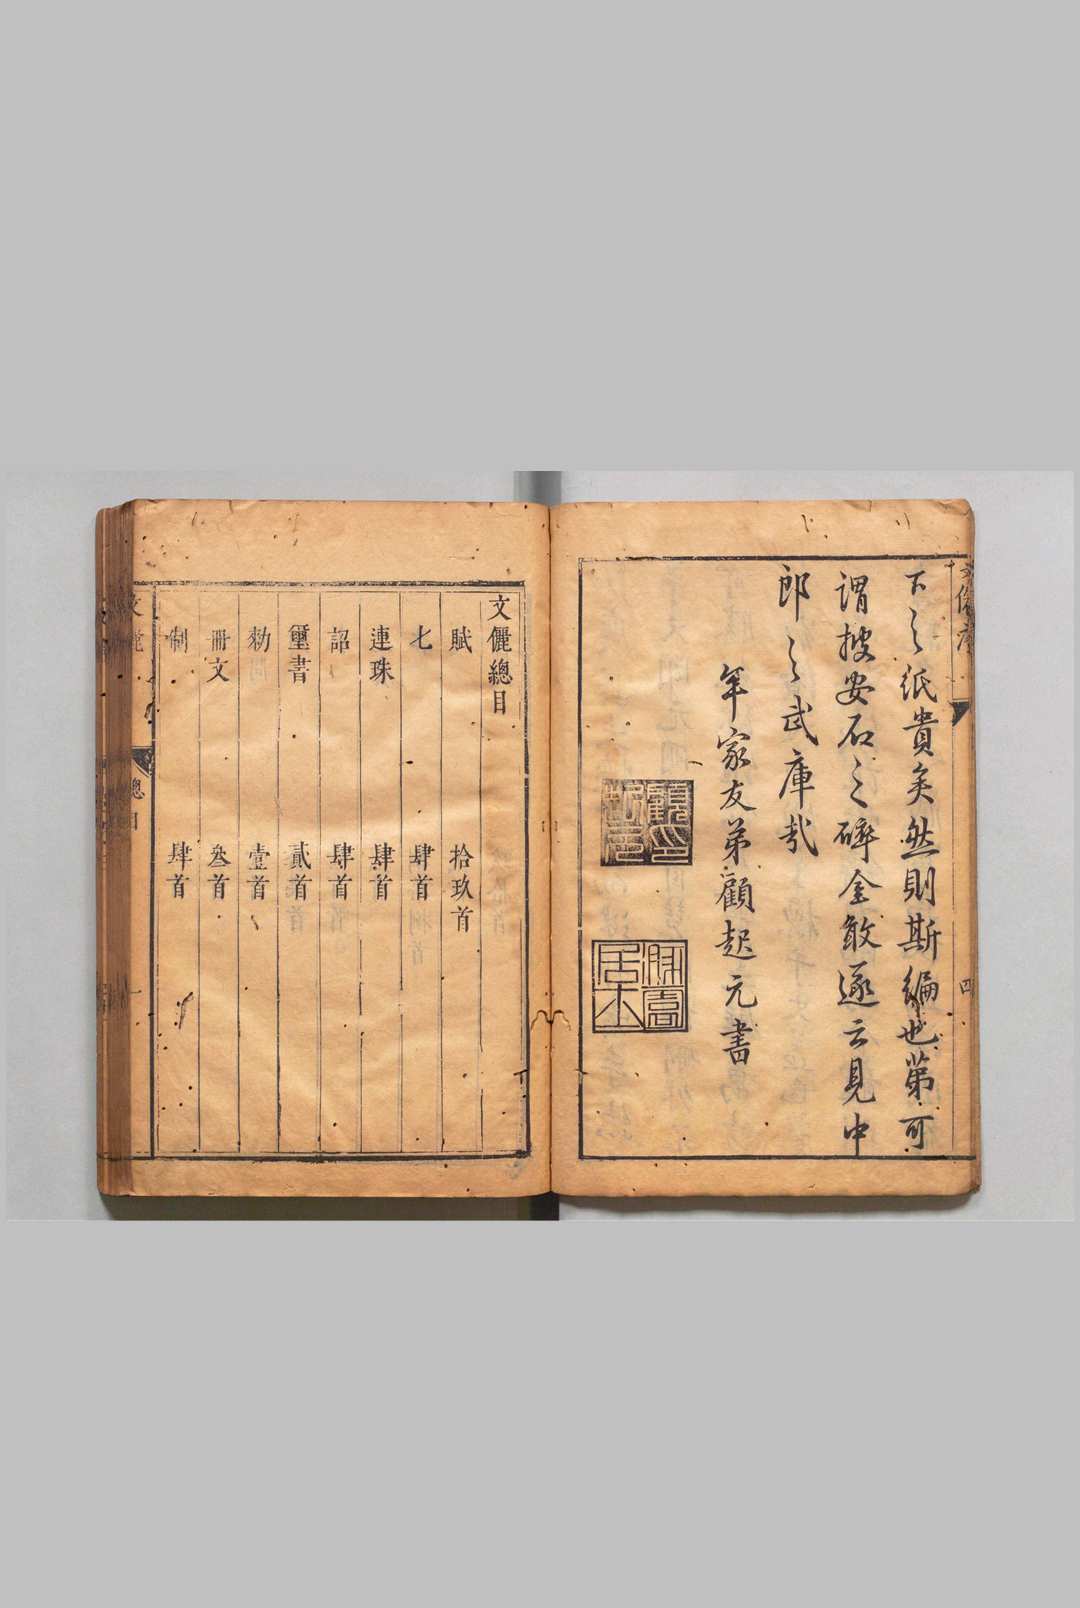 下之紙貴矣然則斯編也第可
謂披安石之碎金敢遂云見中
郎之武庫哉
年家友弟顧起元書
四
文儷總目
賦 拾玖首
七 肆首
連珠 肆首
詔 肆首
璽書 貳首
勑 壹首
冊文 叁首
制 肆首
總目
一